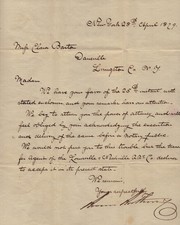 New York 29th April 1879
Miss Clara Barton
Dansville
Livingston Co. N.Y.
Madam
We have your favor of the 28th instant with
stated enclosure and your remarks have our attention.
We beg to return you the power of attorney and will
feel obliged by your acknowledging the execution
and delivery of the same before a notary public.
We would not give you to this trouble but the
for Agents of the Louisville & Nashville R.R. Co. decline
to accept it in its present state.
We remain,
Yours respectfully